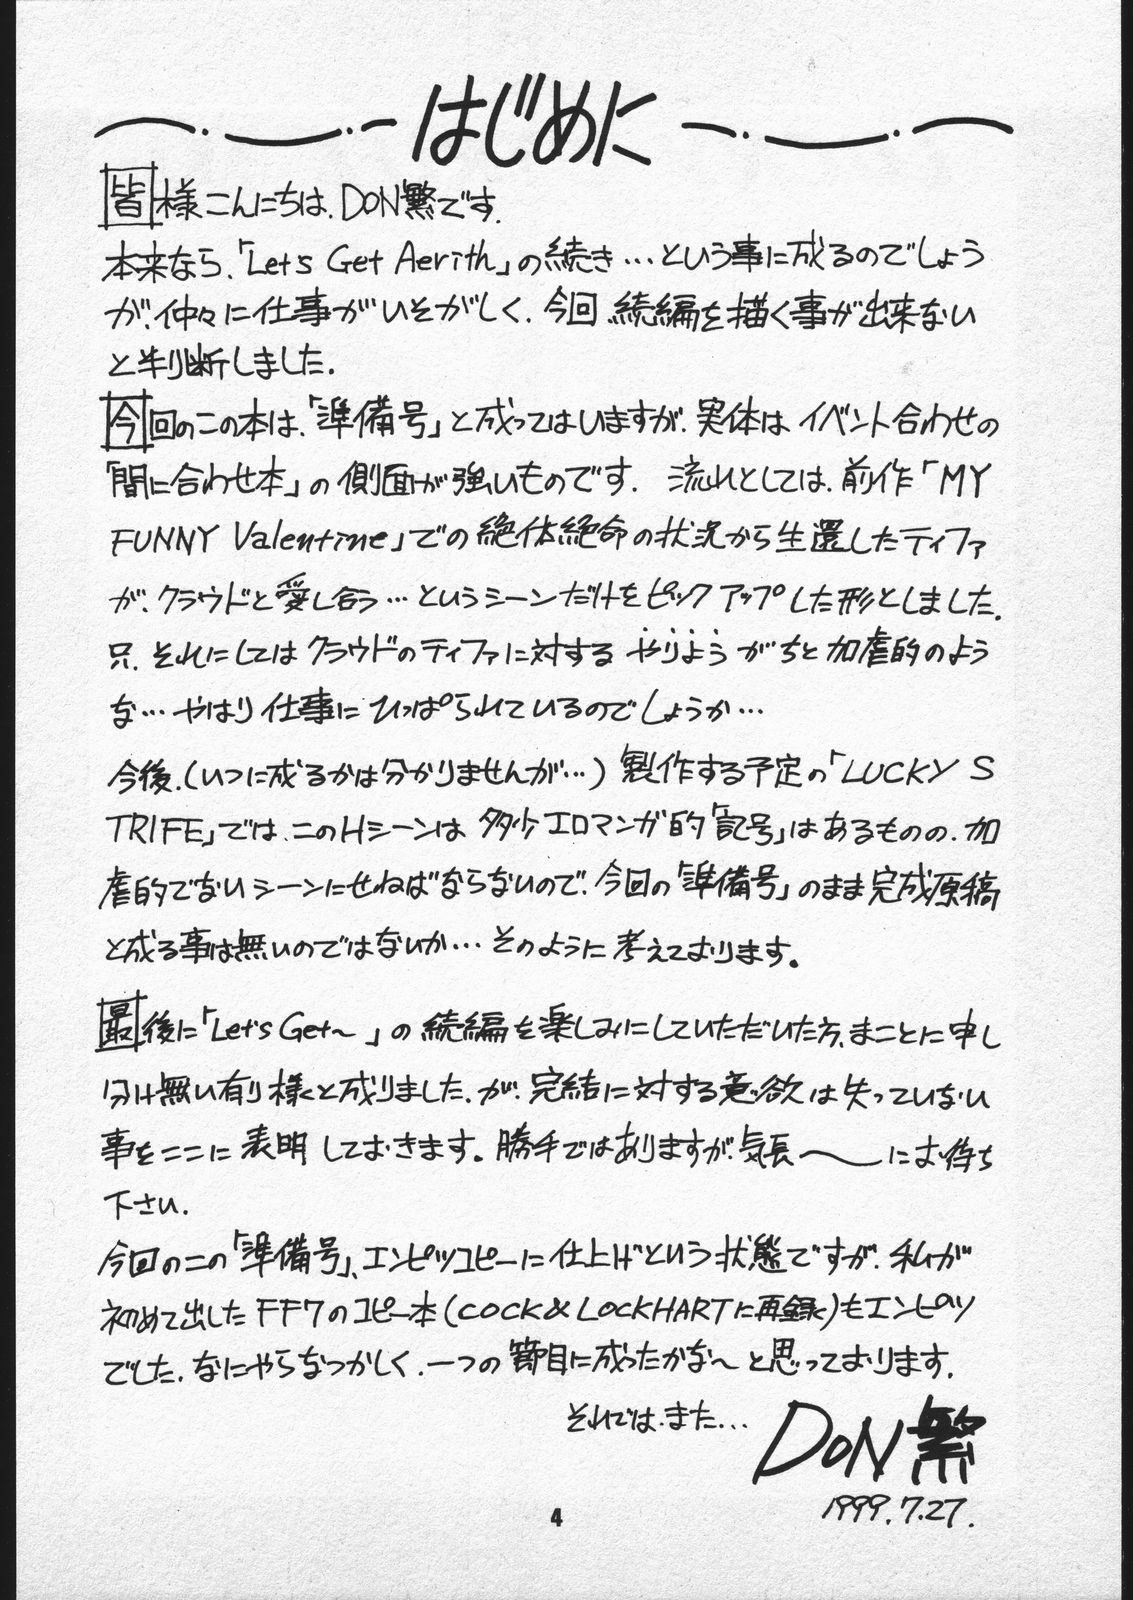 はじめに
皆様こんにちは、DON繁です。
本来なら、「Let's Get Aerith」の続き…という事に成るのでしょう
が、仲々に仕事がいそがしく、今回、続編を描く事が出来ない
と判断しました。
今回のこの本は、「準備号」と成ってはいますが、実体はイベント合わせの
「間に合わせ本」の側面が強いものです。流れとしては、前作「MY
FUNNY Valentine」での絶体絶命の状況から生還したティファ
が、クラウドと愛し合う…というシーンだけをピックアップした形としました。
只、それにしてはクラウドのティファに対するやりようがちと加虐的のよう
な…やはり仕事にひっぱられているのでしょうか…
今後、(いつに成るかは分かりませんが…)製作する予定の「LUCKY S
TRIFE」では、このHシーンは多少エロマンガ的「記号」はあるものの、加
虐的でないシーンにせねばならないので、今回の「準備号」のまま完成原稿
と成る事は無いのではないか…そのように考えております。
最後に「Let's Get〜」の続編を楽しみにしていただいた方、まことに申し
分け無い有り様と成りました、が、完結に対する意欲は失っていない
事をここに表明しておきます。勝手ではありますが、気長〜にお待ち
下さい。
今回のこの「準備号」、エンピツコピーに仕上げという状態ですが、私が
初めて出したFF7のコピー本(COCK&LOCKHARTに再録)もエンピツ
でした、なにやらなつかしく、一つの節目に成ったかな〜と思っております。
それでは、また…
DON繁
1999.7.27.
4